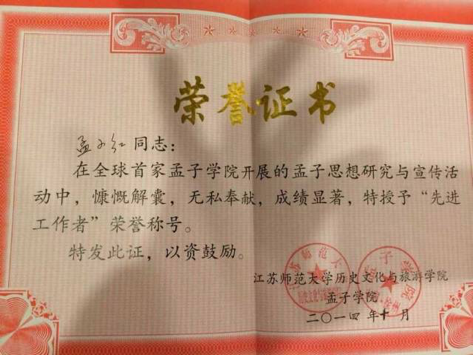 荣誉证书
孟小红同志：
在全球首家孟子学院开展的孟子思想研究与宣传活
动中，慷慨解囊，无私奉献，成绩显著，特授予“先进
工作者”荣誉称号。
特发此证，以资鼓励。
江苏师范大学历史文化与旅游学院
孟子学院
二〇一四年十一月